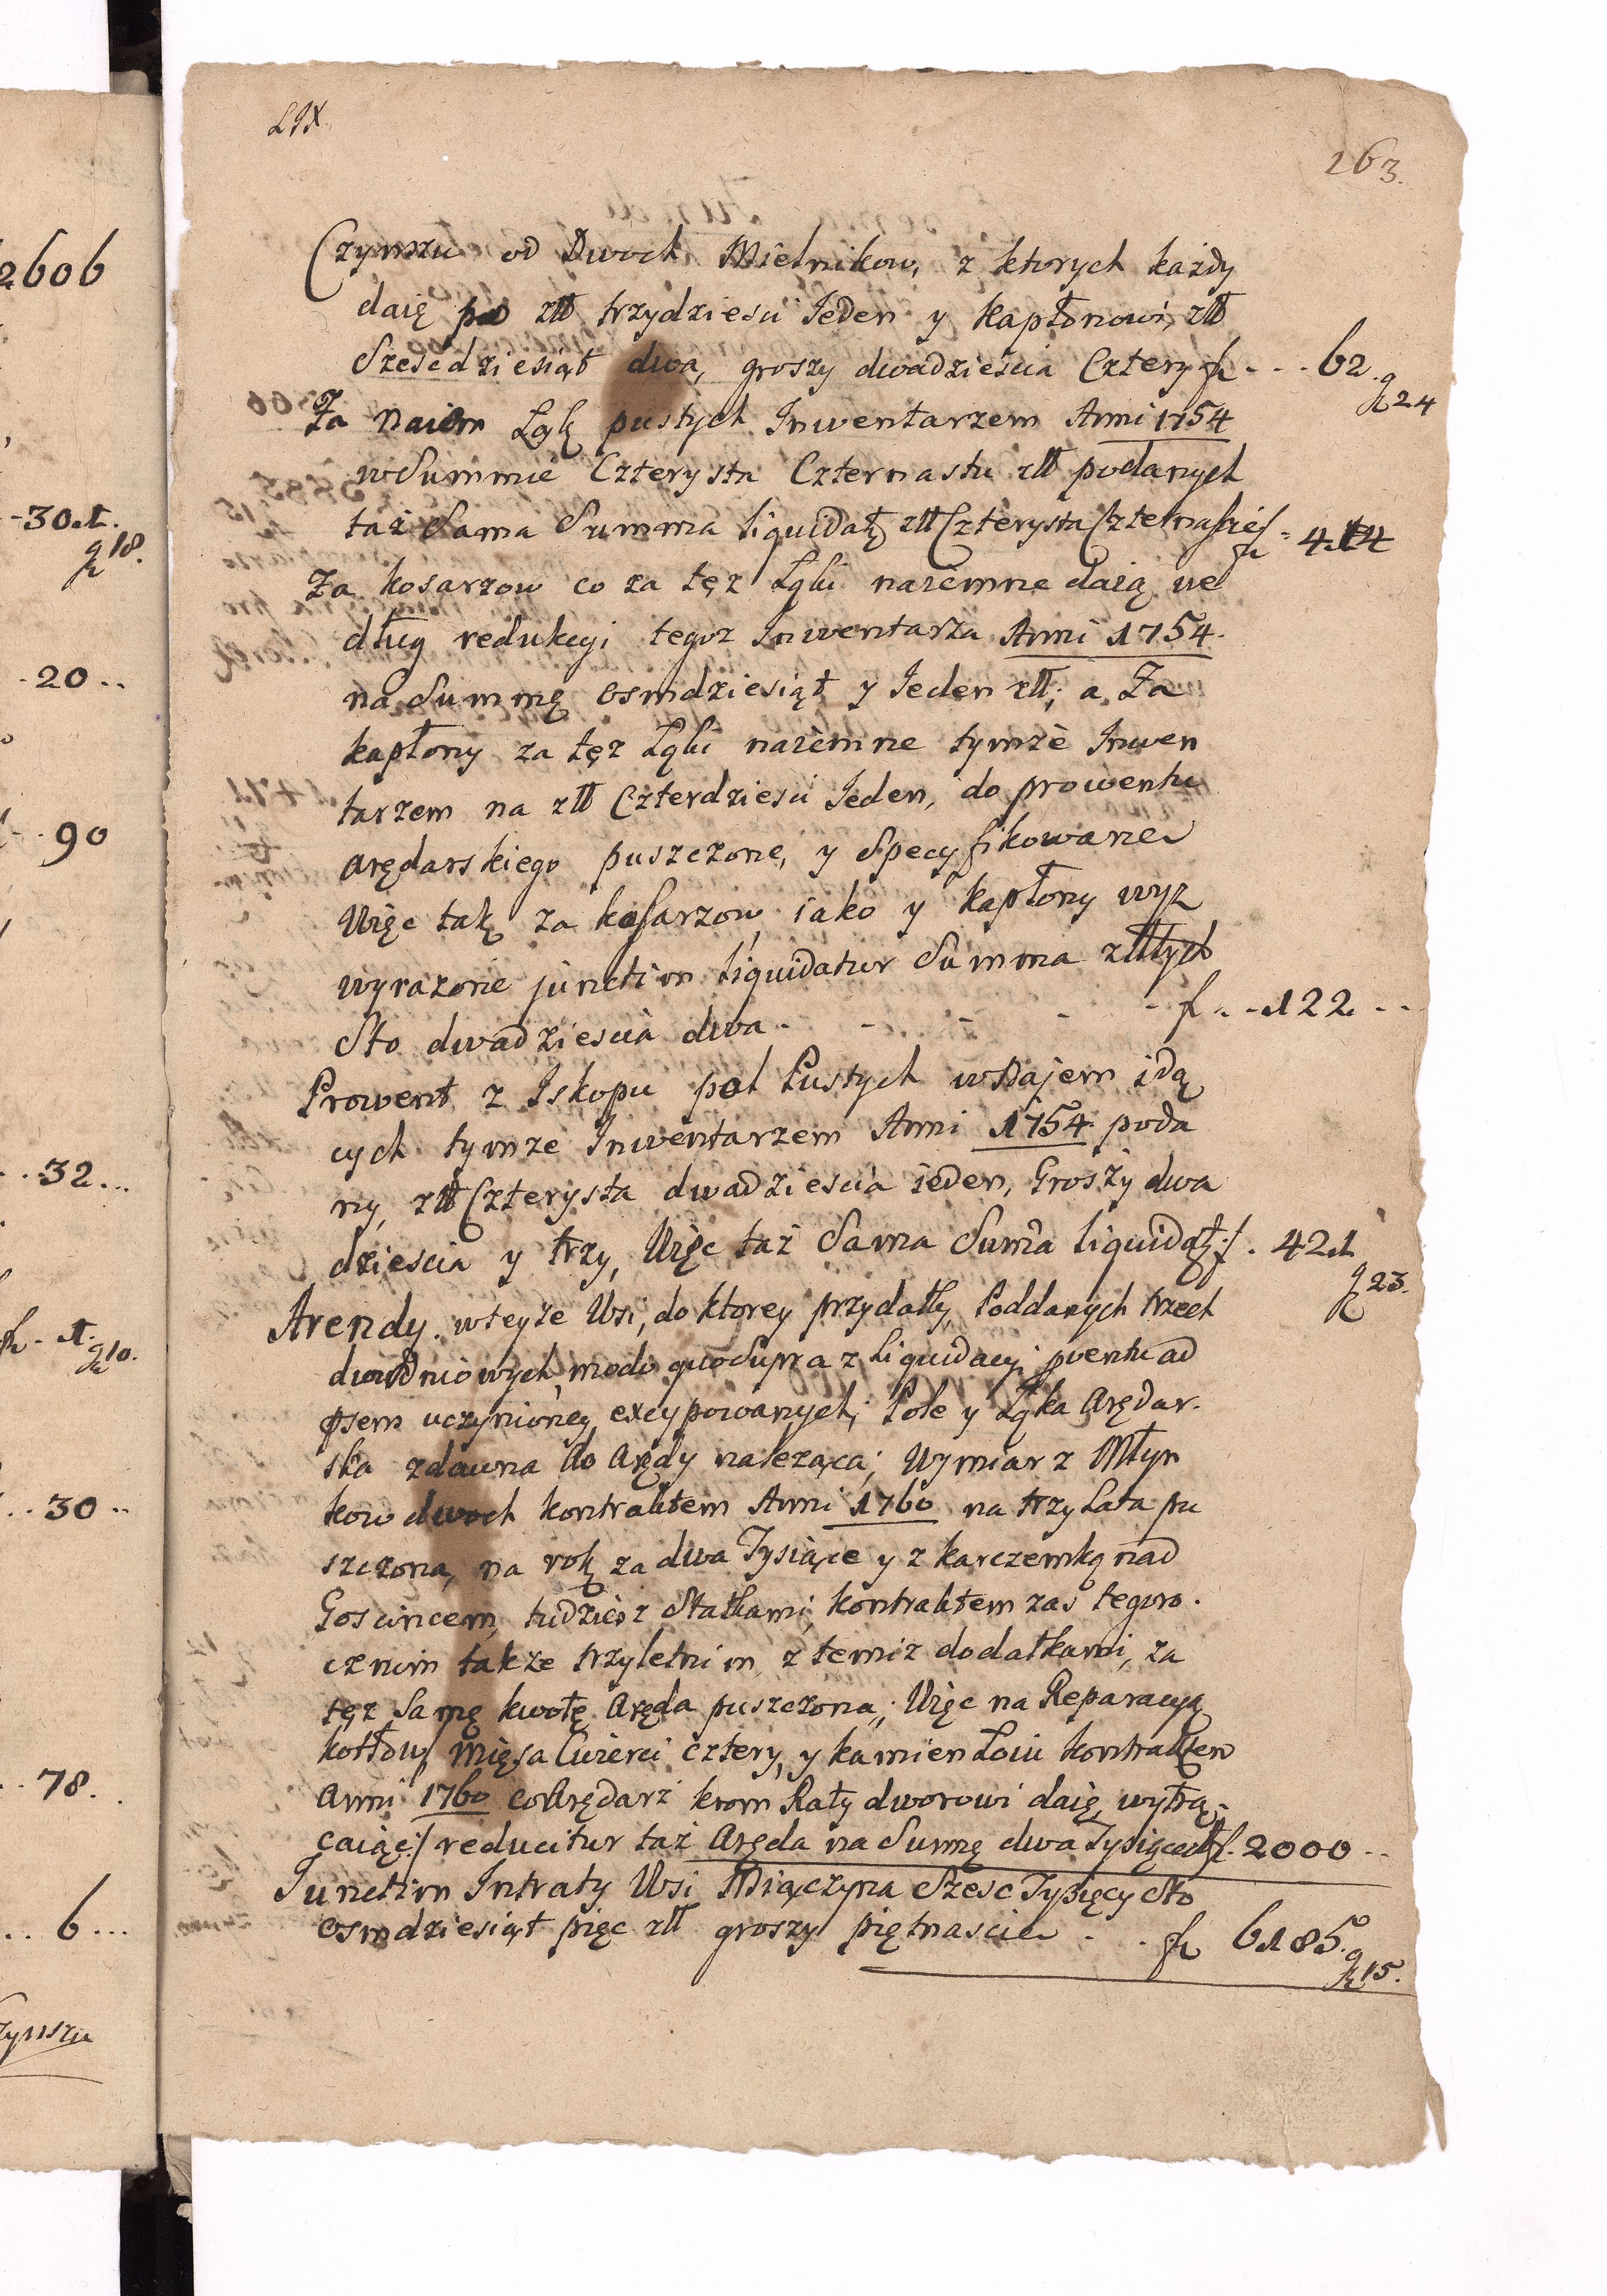 LIX.
263.
Czynszu od Dwoch Mielnikow, z ktorych każdy
daię po złł trzydziesci Jeden y Kapłonowi, złł
Szescdziesiąt dwa, groszy dwadzieścia Cztery f - - - 62. g 24
Za Naiem Łąk pustych Inwentarzem Anni 1754
w Summie Czterysta Czternastu złł podanych
taż Sama Summa liquidatę złł Czterysta Czternaście f - 414
Za kosarzow co za tęz Łąki naiemne daią we
dług redukcyi tegoz Inwentarza Anni 1754.
na Summę osmdziesiąt y Jeden złł; a Za
kapłony za tęz Łąki naiemne tymże Inwen
tarzem na złł Czterdziesci Jeden, do prowentu
arędarskiego puszczone, y Specyfikowane
Więc tak za kosarzow, iako y kapłony wyz
wyrazone junctim liquidatur Summa złłtych
Sto dwadziescia dwa - - - - - f - - 122 - -
Prowent z Iskopu pol Pustych w Najem idą
cych tymze Inwentarzem Anni 1754 poda
ny, złł Czterysta dwadziescia ieden, Groszy dwa
dziescia y trzy, Więc taż Sama Suma liquidatę f. 421 g 23.
Arendy w teyże Wsi, do ktorey przydatły, Poddanych trzech
dwudniowych, modo quo Supra z Liquidacyi pventu ad
psem uczynioney excypowanych; Pole y Łąka Arędar.
ska zdawna do Arędy naleząca; Wymiar z Młyn
kow dwoch kontraktem Anni 1760 na trzy Lata pu
szczona, na rok za dwa Tysiące y z karczemką nad
Goscińcem, tudziesz Statkami, kontraktem zas tegoro.
cznim także trzyletnim z temiz dodatkami, za
tęz Samę kwotę Aręda puszczona; Więc na Reparacyą
kotłow/ Mięsa Cwierci cztery, y kamien Łoiu kontraktem
Anni 1760 co Arędarz krom Raty dworowi daię, wytrą,
caiąc:/ reducitur taż Aręda na Sumę dwa Tysięce f. 2000 - -
Junctim Intraty Wsi Miączyna Szesc Tysięcy Sto
osmdziesiąt pięc złł groszy piętnascie - - f 6185. g 15.
2606
- 30.1. g 18.
- 20 . .
- 90
. . 32 . . .
f - 1. g 10.
. . 30 . .
. . 78 .
. . 6 . . .